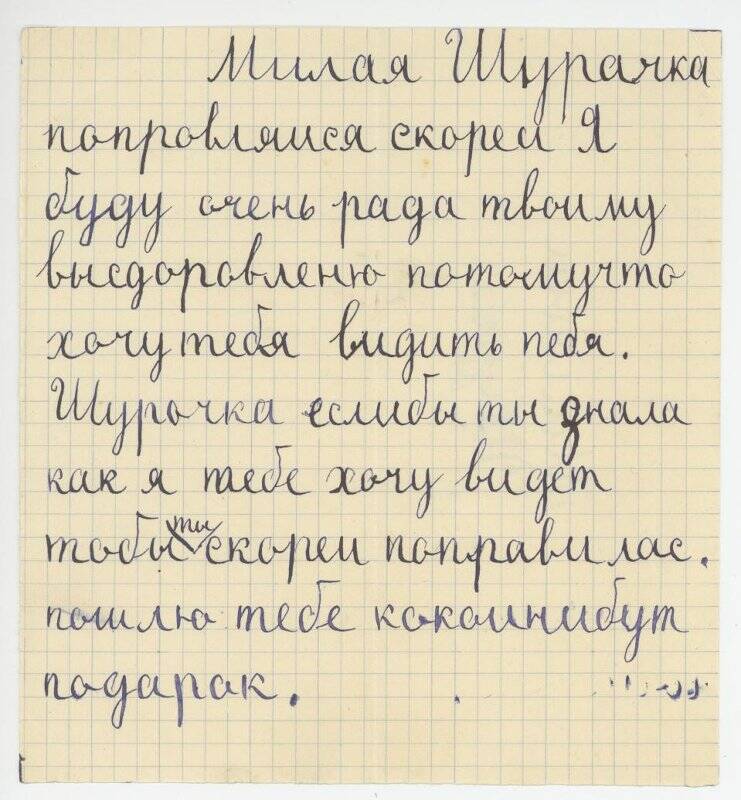 Милая Шурачка
попровляися скореи Я
буду очень рада твоиму
высдоровленю потомучто
хочу тебя видить тебя.
Шурочка еслибы ты знала
как я тебе хочу видет
тобы ты скореи поправилас.
пошлю тебе кокоинибут
подарок.